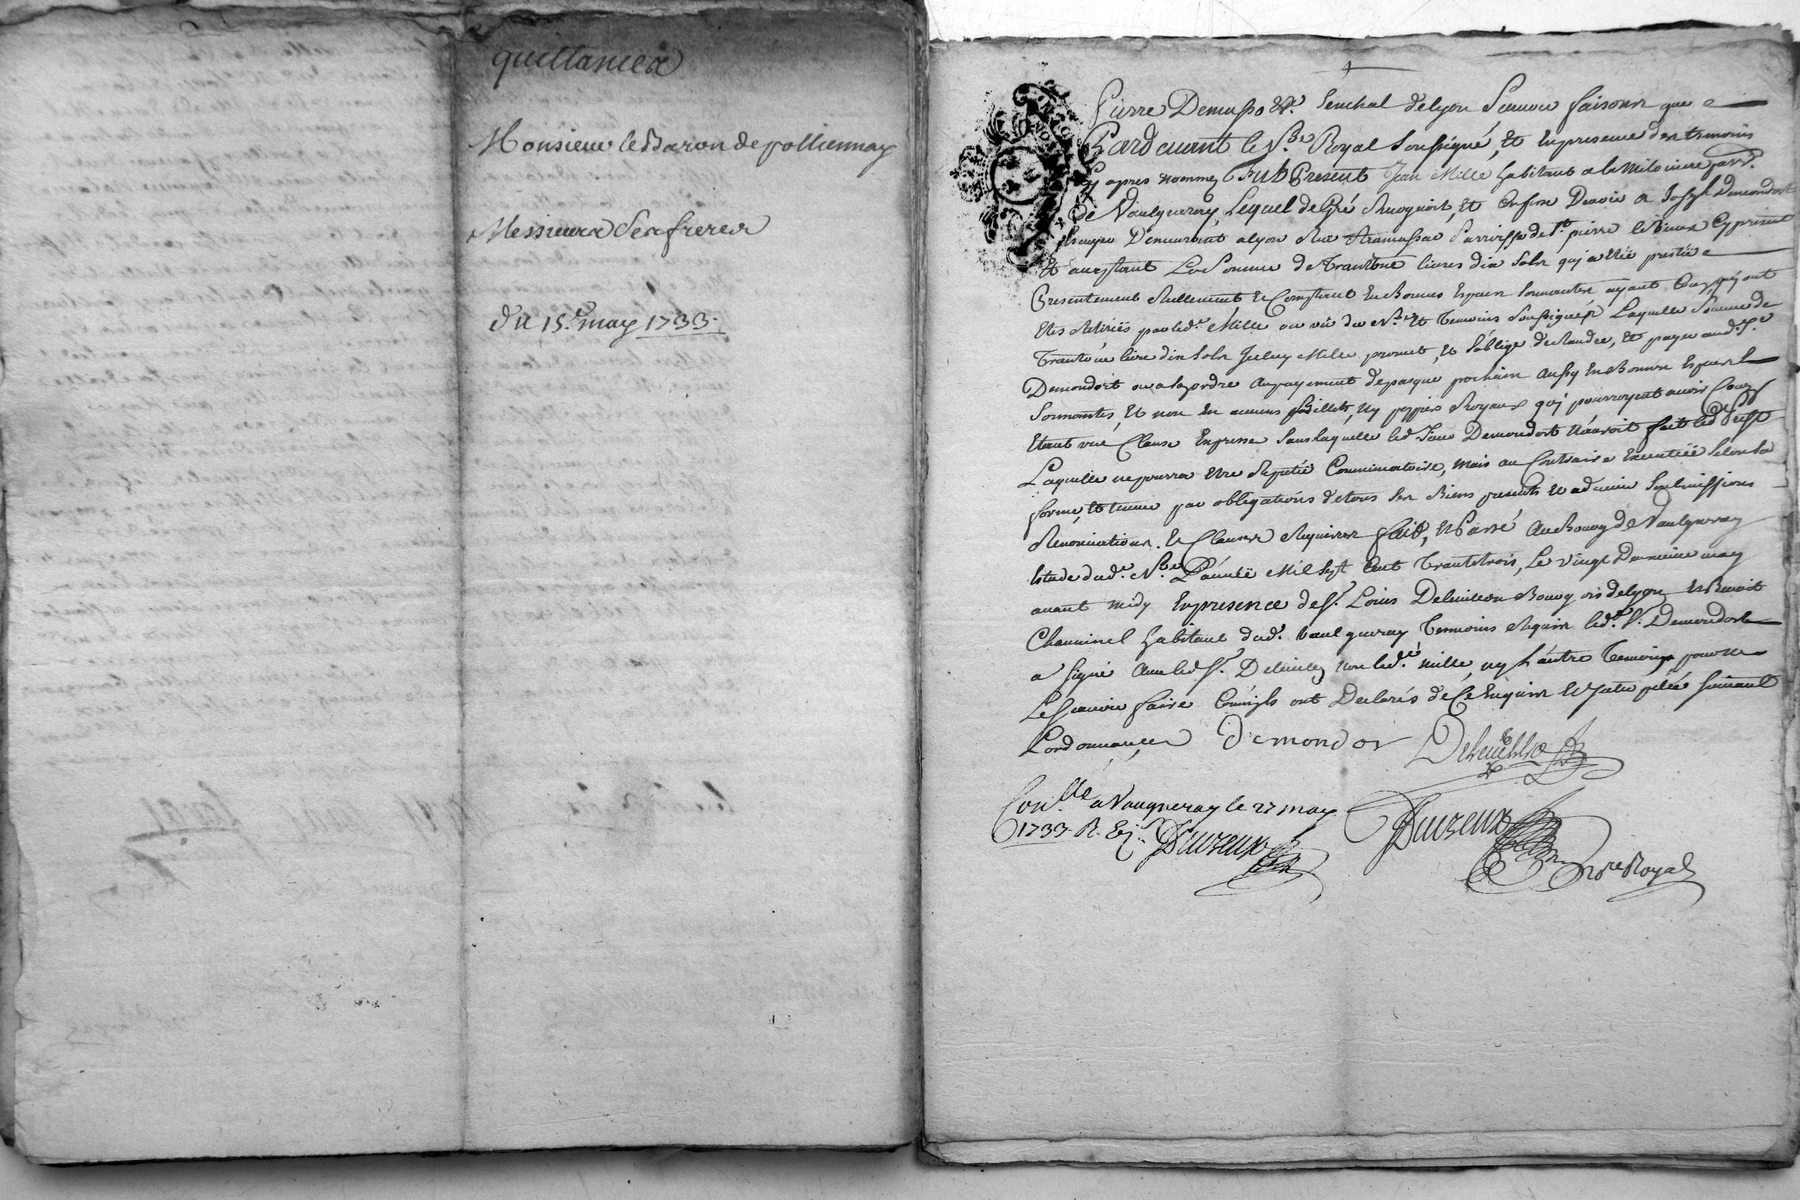 quittances
Monsieur le Baron de polliennay
Messieurs Ses freres
du 15.e may 1733.
Pierre Demasso &.a Senchal de lyon Scavoir faisons que
Pardevant le N.re Royal Soussigné, et En presence des temoins
Cy apres nommez fut Present Jean Mille habitant a la Miloniere parr.
de Vaulgneray, Lequel de Gré Reconnoit, et Confesse Devoir a Joseph Demondort
Demeurant a lyon Rue tramassac Parroisse de St. pierre le vieux Cy present
Et acceptant La Somme de Trantune livres dix sols qu'a Eté prestée
Presentement Réellement et Comptant En Bonnes Especes Sonnantes ayant Cours
et Retirées par led. Mille au vû du N.re et Temoins Soussignés Laquelle Somme de
Trantune livre dix sols Iceluy Mille promet, et s'oblige de Randre, et payer aud. S.r
Demondort ou a Son ordre au payement de pasque prochain aussy En Bonnes Especes
Sonnantes, et non En aucuns Billets, ny pappiers Royaux qui pourroyent avoir Cours
Etant une Clause Expresse Sans laquelle led. Sieur Demondort N'auroit fait led. prest
Laquelle ne pourra Etre Reputée Comminatoire, mais au Contraire Executée Selon Sa
forme, et teneur par obligations de tous Ses Biens presents et advenir Soubmissions
Renonciations, et Clauses Requises fait, et Passé Au Bourg de Vaulgneray
Etude dud. N.re L'année Mil Sept Cent Trantetrois, Le vingt Deuxieme may
avant midy En presence de S.r Louis Bourgois de lyon, et Benoit
Chaminel habitant dud. Vaulgneray Temoins Requis led. S.r Demondort
a signé avec led. S.r non led. Mille, ny L'autre Temoins pour ne
Le Scavoir faire Comm'ils ont Declarés de Ce Enquis et Interpelés Suivant
L'ordonnance Demondor
Con.llé a Vaugneray le 27 may
1733 R. Duzeux
Duzeux
n.re Royal